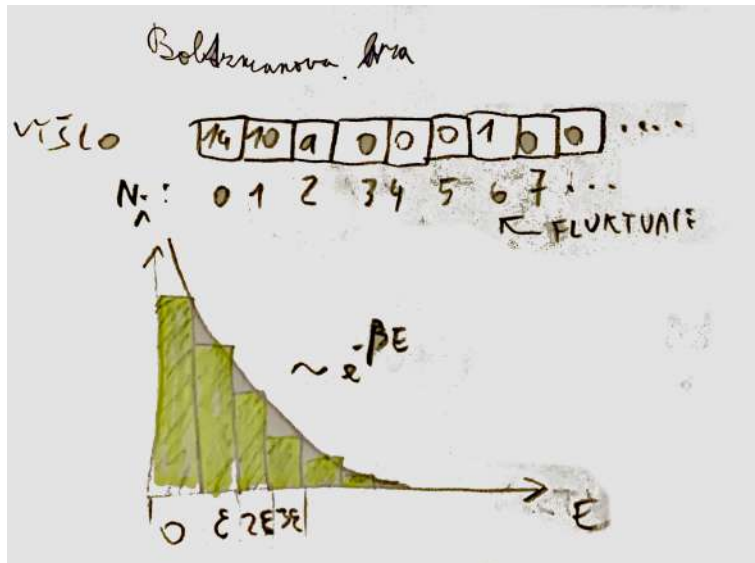 Boltzmanova hra
VYŠLO 14 10 9 0 0 0 1 0 0 ....
Nᵢ: 0 1 2 3 4 5 6 7 ...
← FLUKTUACE
~ e^-βE
0 ε 2ε 3ε E